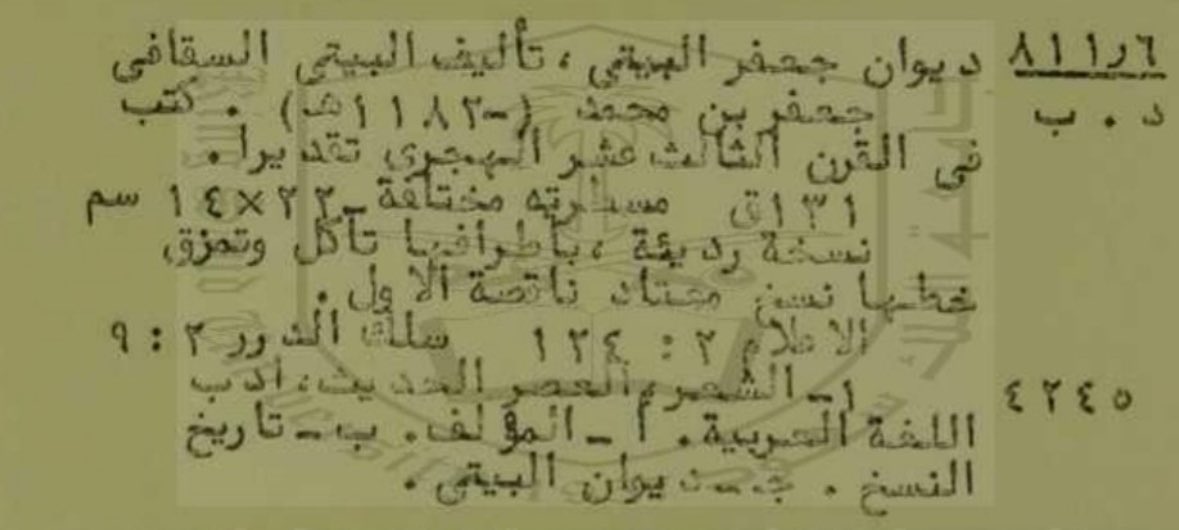 ٨١١٫٦ ديوان جعفر البيتي ، تأليف البيتي السقافي
د . ب جعفر بن محمد (-١١٨٢هـ) . كتب
في القرن الثالث عشر الهجري تقديرا .
١٣١ق مسطرته مختلفة ٢٢×١٤ سم
نسخة رديئة ، بأطرافها تآكل وتمزق
خطها نسخ معتاد ناقصة الاول .
الاعلام ٢ : ١٢٤ سلك الدرر ٢ : ٩
٤٢٤٥ ١- الشعر ، العصر الحديث ، أدب
اللغة العربية . أ - المؤلف . ب - تاريخ
النسخ . ج - ديوان البيتي .